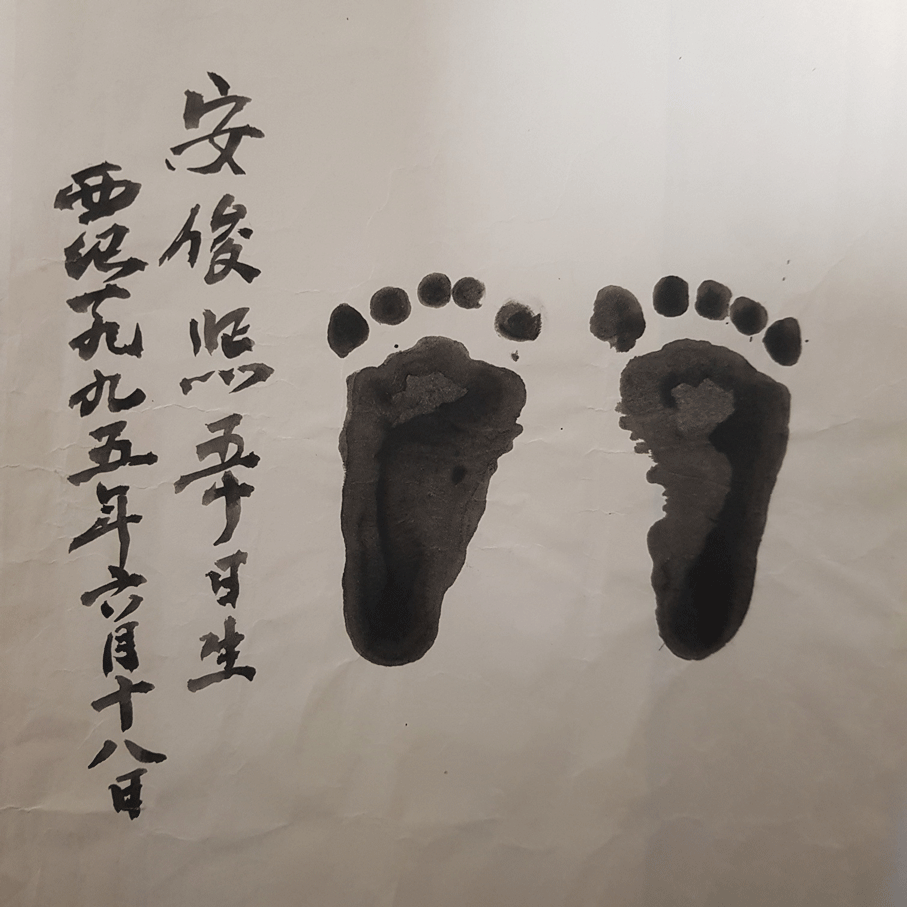 安俊熙五十日生
西紀一九九五年六月十八日